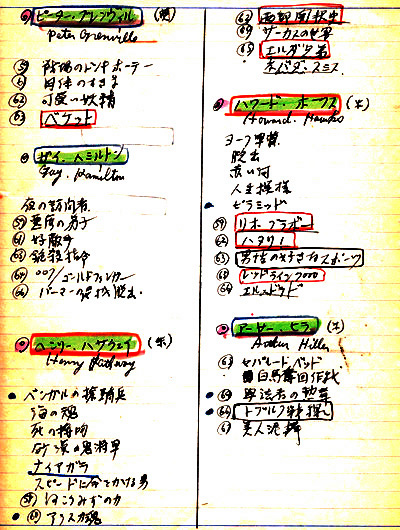 ピーター・グレンヴィル (英)
Peter Grenville
59 陽のドンキホーテ
61 肉体のすきま
62 可愛い妖精
63 ベケット
ガイ・ハミルトン
Guy Hamilton
夜の訪問者
57 悪の男子
61 好敵手
63 指令
64 007/ゴールドフィンガー
66 脱出
ヘンリー・ハサウェイ (米)
Henry Hathaway
ベンガルの槍騎兵
海の魂
死の接吻
砂漠の鬼将軍
ナイアガラ
スピードに命をかける男
58 向こうみずの男
60 アラスカ魂
62 西部開拓史
64 サーカスの世界
65 エルダー兄弟
ネバダ・スミス
ハワード・ホークス (米)
Howard Hawks
ヨーク軍曹
脱出
赤い河
人生模様
ピラミッド
59 リオ・ブラボー
62 ハタリ!
63 男性の好きなスポーツ
65 レッドライン7000
66 エル・ドラド
アーサー・ヒラー (米)
Arthur Hiller
63 セパレート・ベッド
白馬奪回作戦
65 の
66 トブルク戦線
67 美人泥棒